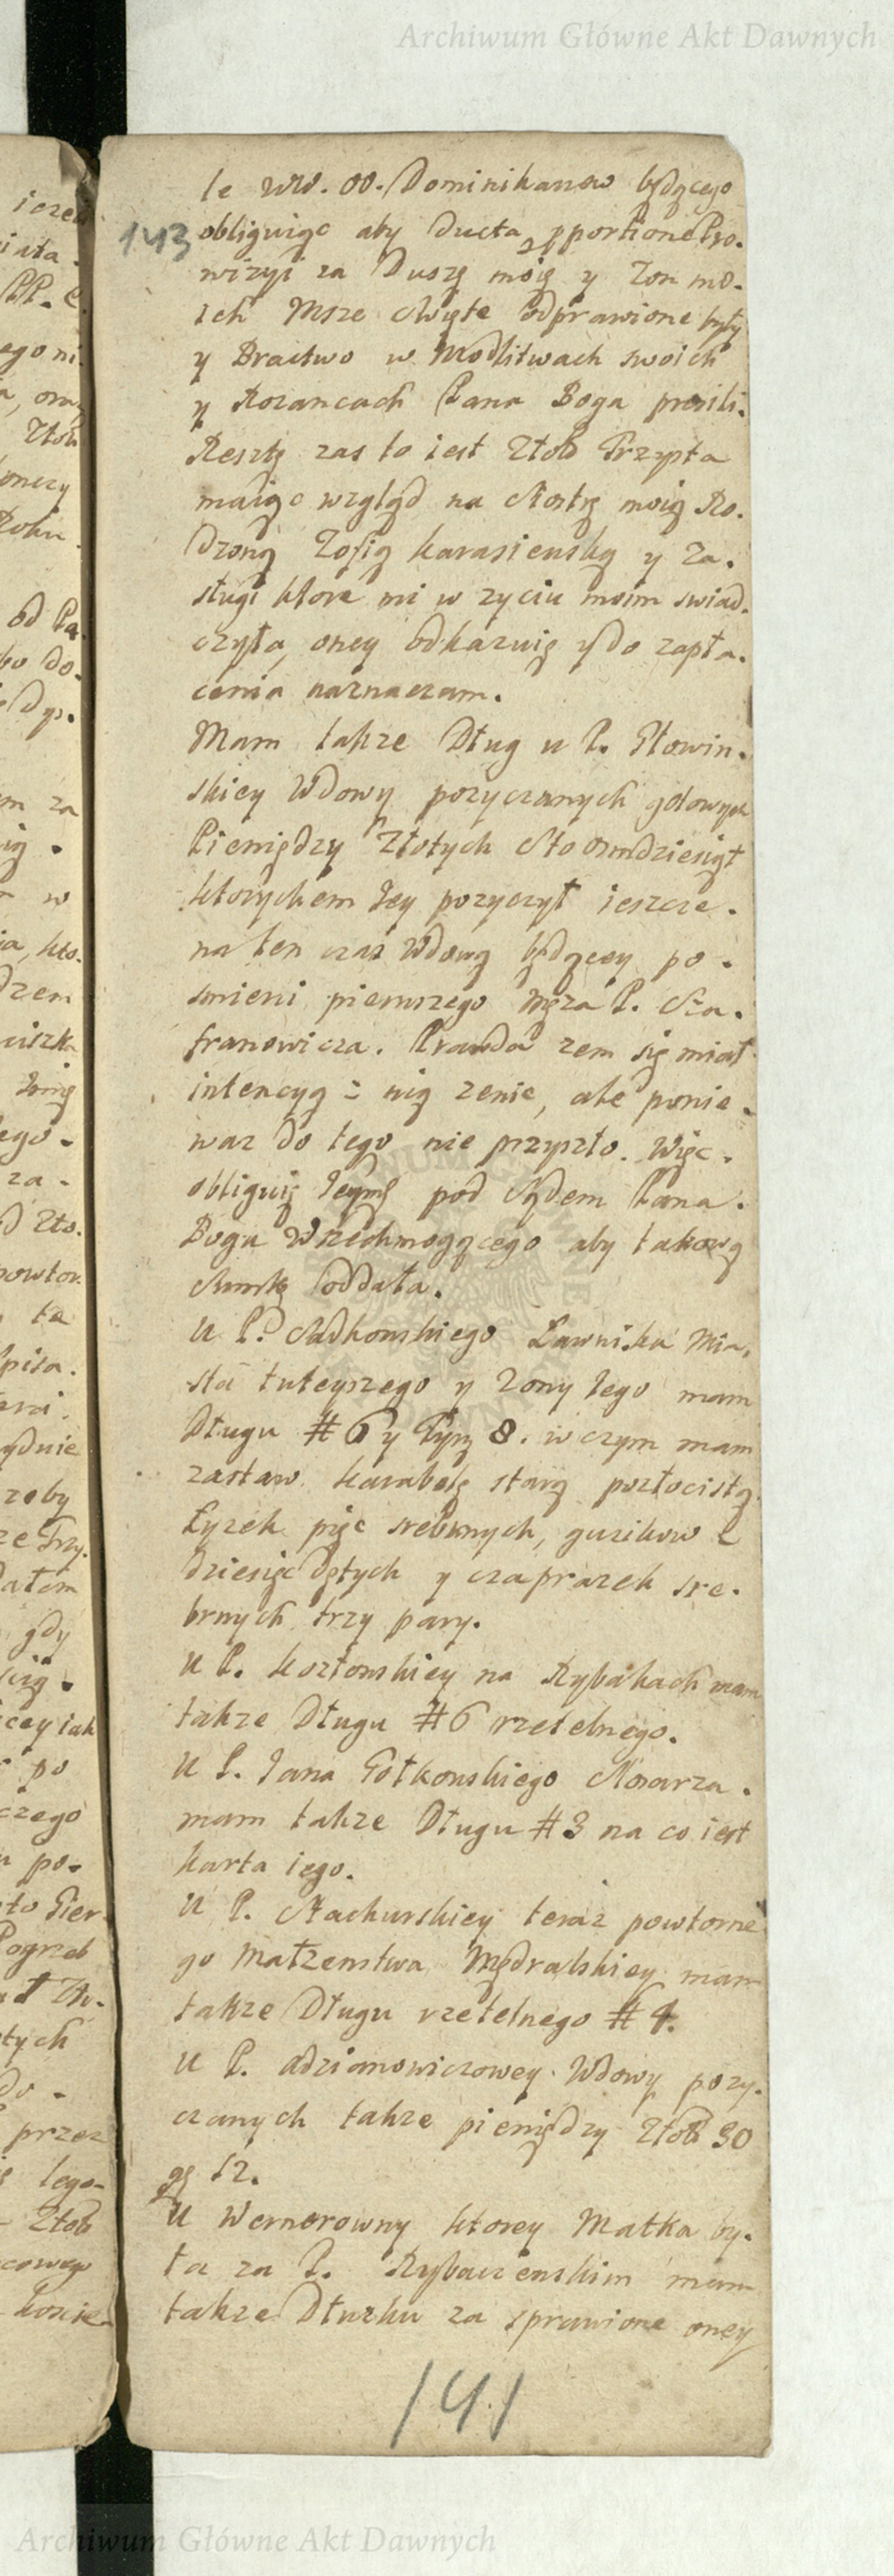 Archiwum Główne Akt Dawnych
le WW. OO. Dominikanow będącego
143
obliguiąc aby ducta proportione Pro-
wizyi za Duszę moię y Zon mo-
ich Msze Swięte odprawione były
y Bractwo w Modlitwach swoich
y Rozancach Pana Boga prosili.
Resztę zas to iest Złotb Trzysta
maiąc wzgląd na Siostrę moią Ro-
dzoną Zofią Karasienską y Za-
sługi ktore mi w zyciu moim swiad-
czyła, oney odkazuię y do zapła-
cenia naznaczam.
Mam takze Dług u P. Głowin-
skiey Wdowy pozyczanych gotowych
Pieniędzy Złotych Sto osmdziesiąt
ktorychem Jey pozyczył ieszcze
na ten czas Wdową będącey po
smierci pierwszego Męza P. Sza-
franowicza. Prawda zem się miał
intencyą z nią zenic, ale ponie-
waz do tego nie przyszło. Więc
obliguię Jeymć pod Sądem Pana
Boga Wszechmogącego aby takową
Summę oddała.
U P. Sadkowskiego Ławnika Mia-
sta tuteyszego y Zony Jego mam
Długu # 6 y Tynf 8. w czym mam
zastaw Karabelę starą pozłocistą
Łyzek pięc srebrnych, guzikow
dziesięc dętych y czaprazek sre-
brnych trzy pary.
U P. Kozłowskiey na Rybakach mam
takze Długu # 6 rzetelnego.
U P. Jana Gołkowskiego
mam takze Długu # 3 na co iest
karta iego.
U P. Stachurskiey teraz powtorne
go Małzenstwa Mędralskiey mam
takze Długu rzetelnego # 4.
U P. Adziamowiczowey Wdowy pozy-
czanych takze pieniędzy Złotb 30
gr 12.
U Wernerowny ktorey Matka by-
ła za P. Rybaczenskim mam
takze Dłuzku za sprawione oney
141
Archiwum Główne Akt Dawnych